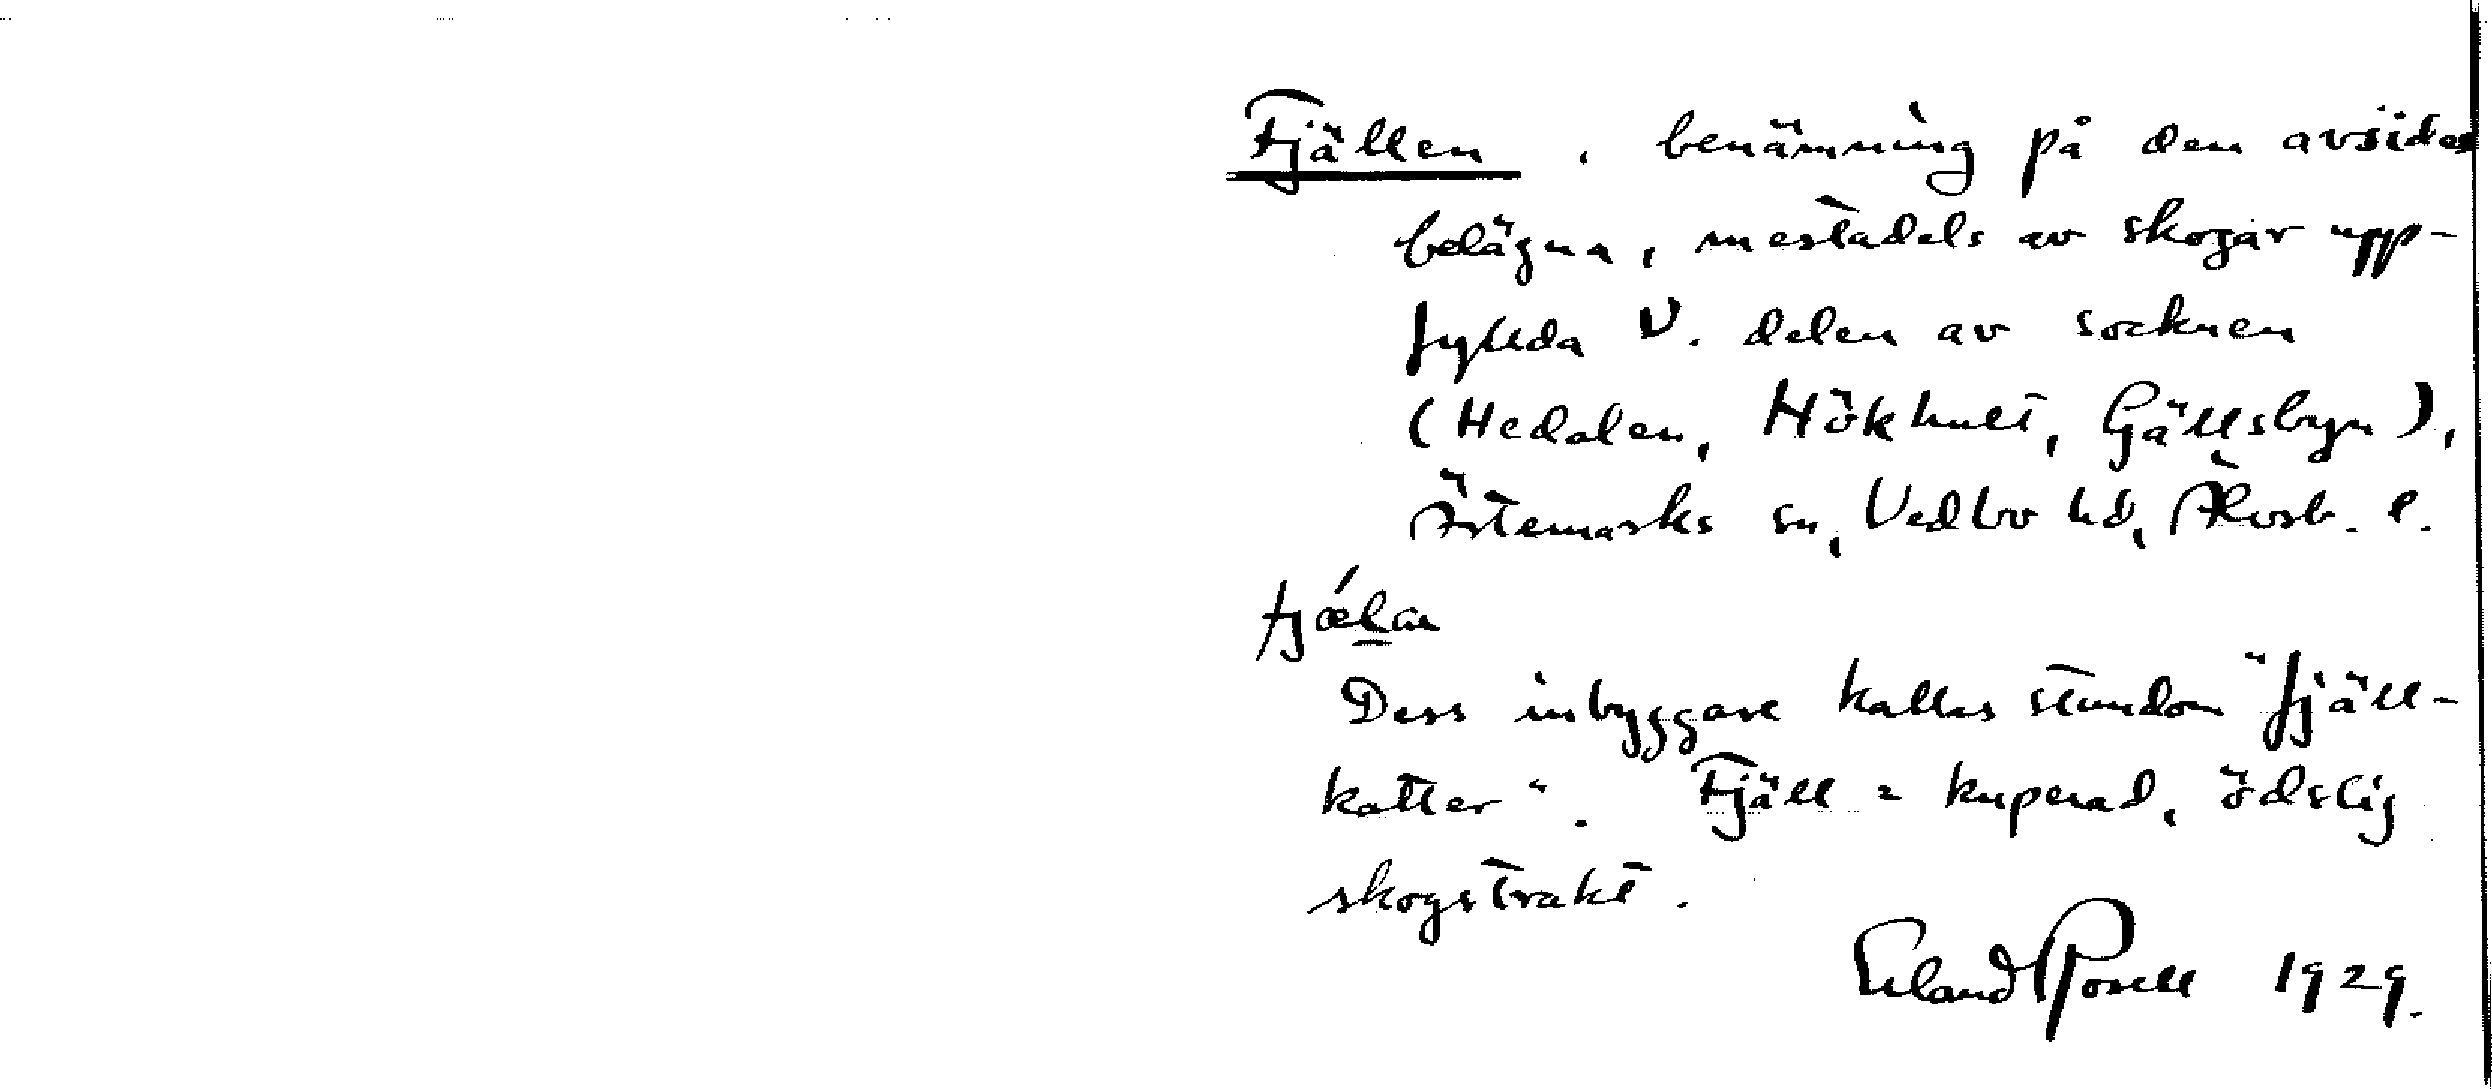 Fjällen, benämning på den avsides
belägna, mestadels av skogar upp-
fyllda V. delen av socknen
(Hedalen, Hökhult, Gjällsbyn),
Ärtemarks sn, Vedbo hd, Älvsb. l.
fjǽlan
Dess inbyggare kallas stundom "fjäll-
katter". Fjäll = kuperad, ödslig
skogstrakt.
Erland Rosell 1929.